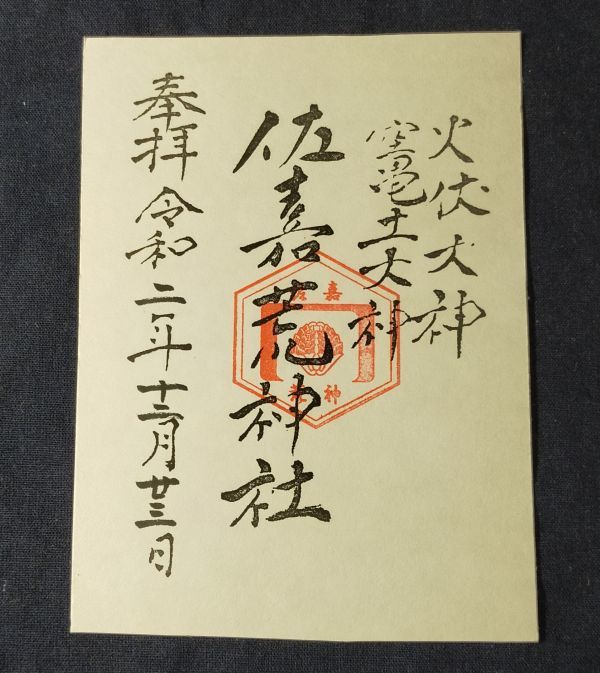 火伏大神
竈土大神
佐嘉荒神社
奉拝 令和二年十二月廿三日
佐嘉
荒神